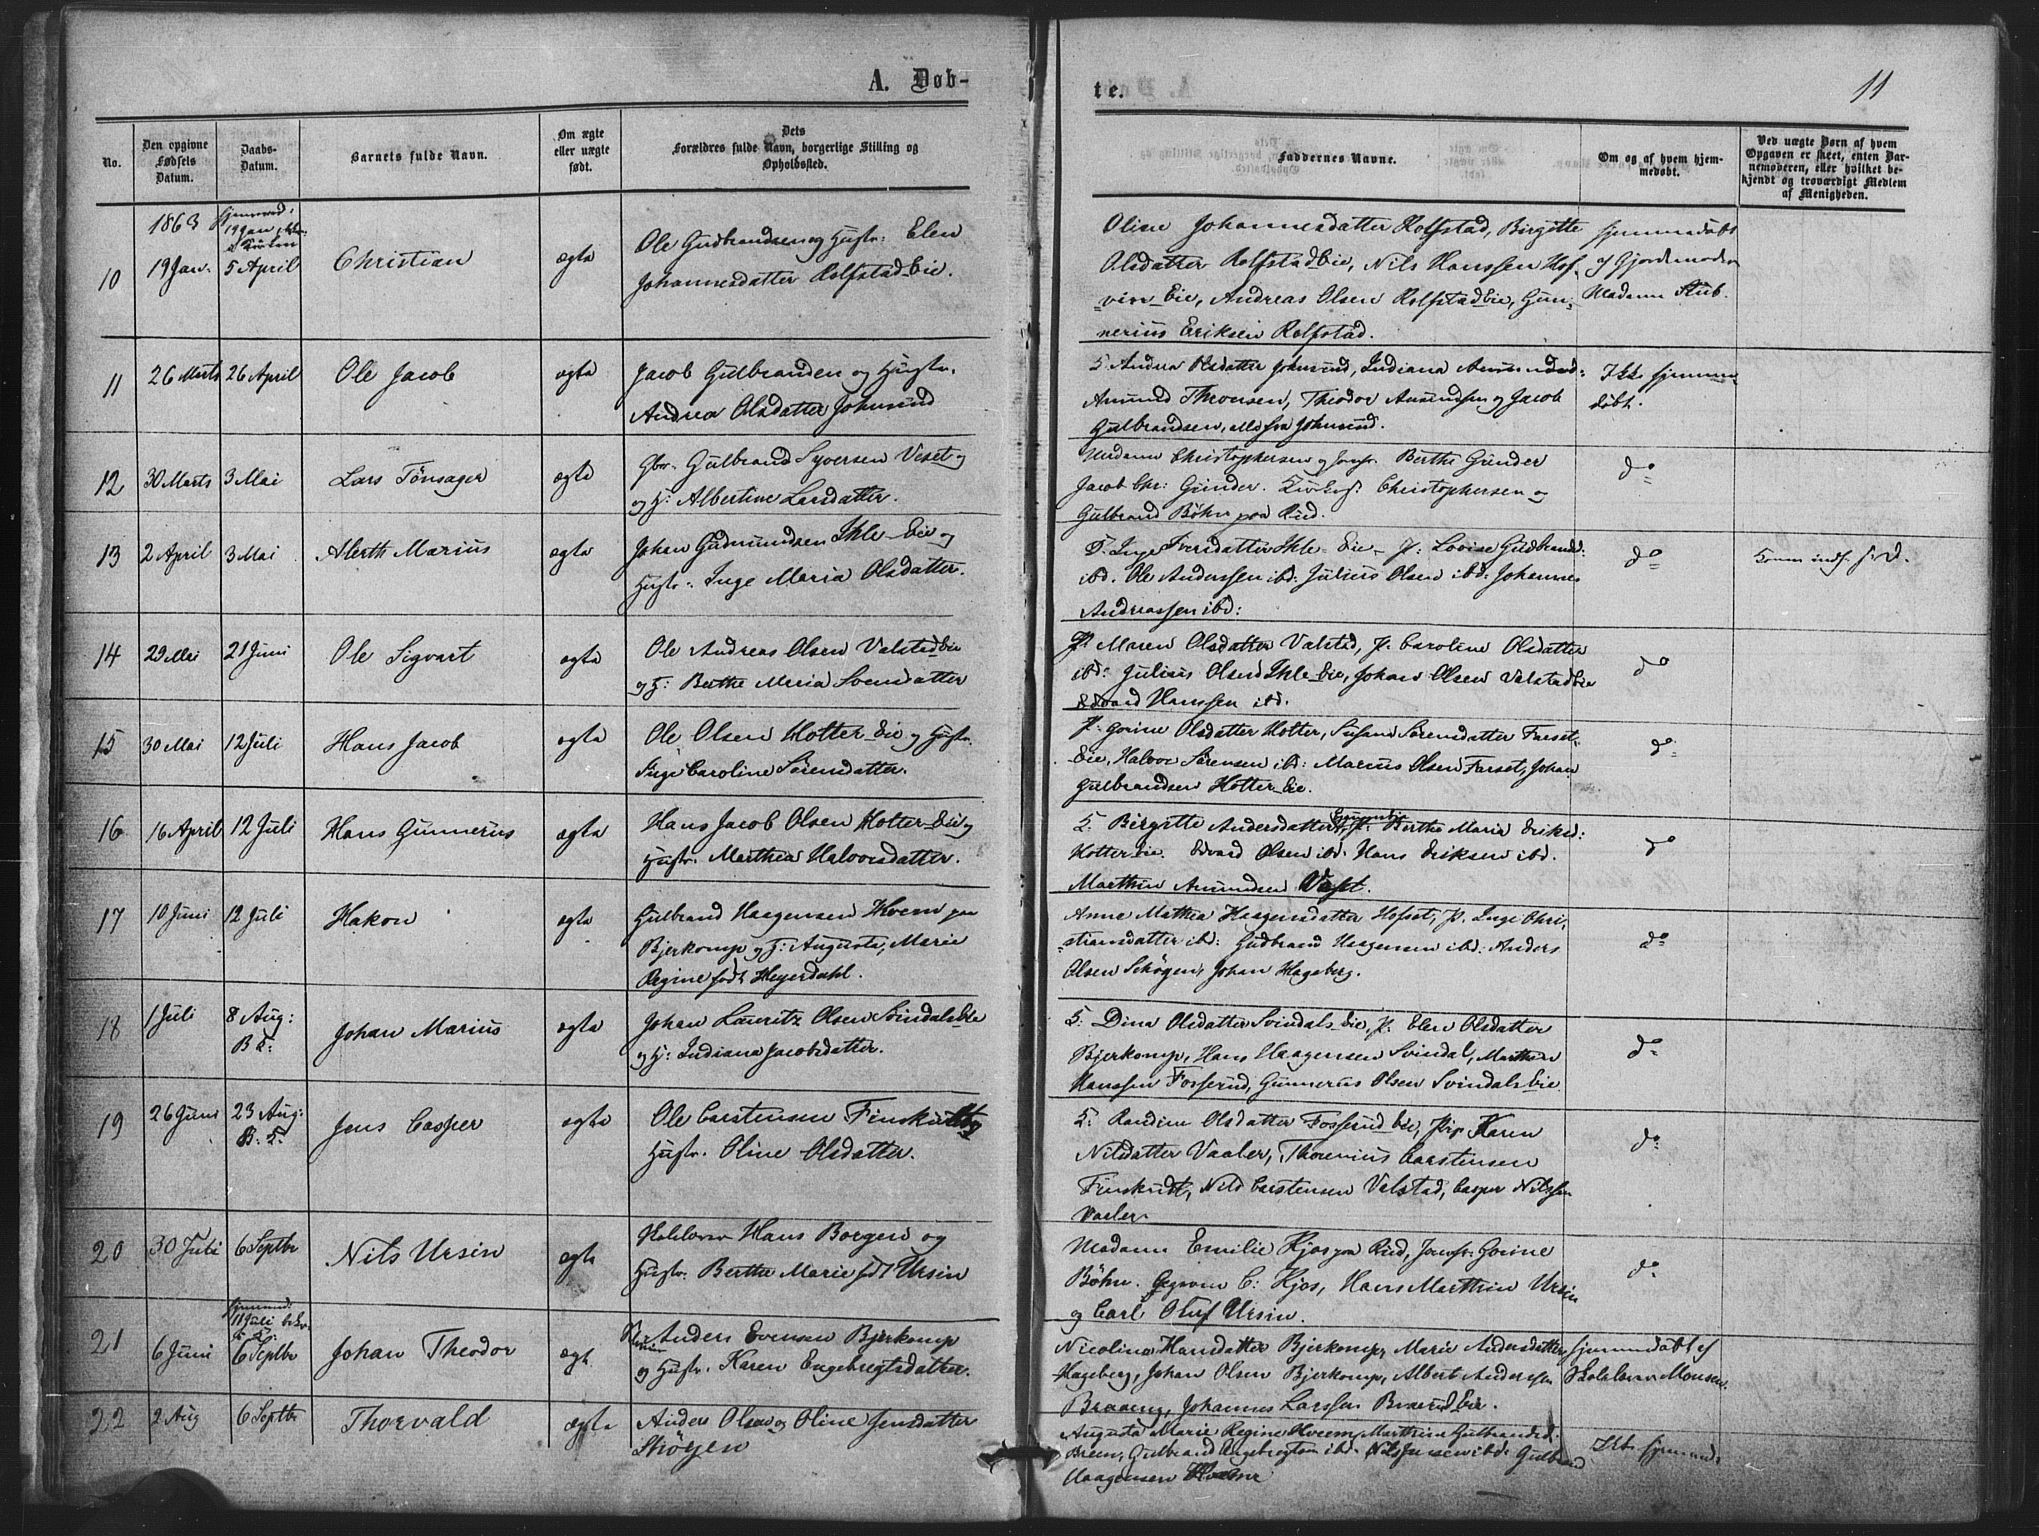 A. Døb-
te.
11
No.
Den opgivne
Fødsels
Datum.
Daabs-
Datum.
Barnets fulde Navn.
Om ægte
eller uægte
født.
Dets
Forældres fulde Navn, borgerlige Stilling og
Opholdssted.
Faddernes Navne.
Om og af hvem hjem-
medøbt.
Ved uægte Børn af hvem
Opgaven er skeet, enten Bar-
nemoderen, eller hvilket be-
kjendt og troværdigt Medlem
af Menigheden.
1863
19 Jan
10
19 Jan.
5 April
Christian
ægte
Ole Gudbrandsen og Hustr: Elen
Johannesdatter Rolfstad Eie.
Oline Johannesdatter Rolfstad, Birgitte
Olsdatter Rolfstad Eie, Nils Hanssen Hof-
vin Eie, Andreas Olsen Rolfstad Eie, Gun-
nerius Eriksen Rolfstad.
hjemmedøbt
af Gjordemoder
Madame Stub.
11
26 Marts
26 April
Ole Jacob
ægte
Jacob Gulbrandsen og Hustr.
Andrea Olsdatter Johnsrud
Andrea Olsdatter Johnsrud, Indiana Amundsd:
Amund Thronsen, Theodor Amundsen og Jacob
Gulbrandsen, alle fra Johnsrud.
Ikke hjemme
døbt.
12
30 Marts
3 Mai
Lars Tönsager
ægte
Gbr. Gulbrand Syversen Veset og
og H: Albertine Larsdatter.
Madame Christophersen og Jomfr. Berthe Günder
Jacob Chr: Günder. Christophersen og
Gulbrand Böhn paa Rud.
do
13
2 April
3 Mai
Alerth Marius
ægte
Johan Gudmundsen Ihle Eie og
Hustr: Inge Maria Olsdatter.
Inge Iversdatter Ihle Eie P: Lovise Gudbrandsd:
ibd. Ole Anderssen ibd: Julius Olsen ibd: Johannes
Andreassen ibd:
do
14
29 Mai
21 Juni
Ole Sigvart
ægte
Ole Andreas Olsen Valstad Eie
og H: Berthe Maria Svensdatter
P. Maren Olsdatter Valstad, P. Caroline Olsdatter
ibd: Julius Olsen Ihle Eie, Johan Olsen Valstad Eie
Edvard Hanssen ibd.
do
15
30 Mai
12 Juli
Hans Jacob
ægte
Ole Olsen Hotter Eie og Hustr.
Inge Caroline Sörensdatter.
P: Gorine Olsdatter Hotter, Susane Sörensdatter Farset-
Eie, Halvor Sörensen ibd: Marius Olsen Farset, Johan
Gulbrandsen Hotter Eie.
do
16
16 April
12 Juli
Hans Gunnerius
ægte
Hans Jacob Olsen Hotter Eie og
Hustr. Marthea Halvorsdatter.
Birgitte Andersdatter P: Berthe Maria Eriksd:
Hotter Eie. Edvard Olsen ibd. Hans Eriksen ibd.
Marthin Amundsen Veset.
do
17
10 Juni
12 Juli
Hakon
ægte
Gulbrand Haagensen Hveem paa
Bjerkomp og H: Augusta Marie
Regine født Heyerdahl.
Anne Mathea Haagensdatter Hofset, P. Inge Chri-
stiansdatter ibd: Gudbrand Haagensen ibd: Anders
Olsen Sköyen, Johan Hageberg.
do
18
1 Juli
8 Aug:
Johan Marius
ægte
Johan Lauritz Olsen Svindals Eie
og H: Indiana Jacobsdatter.
Dina Olsdatter Svindals Eie, P. Elen Olsdatter
Bjerkomp, Hans Haagensen Svindal, Marthin
Hanssen Fosserud, Gunnerus Olsen Svindals Eie
do
19
26 Juni
23 Aug:
Jens Casper
ægte
Ole Carstensen Finskudt og
Hustr. Oline Olsdatter.
Randine Olsdatter Fosserud Eie, Pig. Karen
Nilsdatter Vaaler, Thorenius Carstensen
Finskudt, Nils Carstensen Valstad, Casper Nilssen
Vaaler
do
20
30 Juli
6 Septbr
Nils Ursin
ægte
Hans Borgen og
Hustr. Berthe Marie født Ursin
Madame Emilie Kjos paa Rud, Jomfr: Gorine
Böhn. C: Kjos, Hans Marthin Ursin
og Carl Oluf Ursin.
do
11 Juli
21
6 Juni
6 Septbr
Johan Theodor
ægte
Anders Evensen Bjerkomp
og Hustr. Karen Engebregtsdatter.
Nicoline Hansdatter Bjerkomp, Marie Andersdatter
Hageberg, Johan Olsen Bjerkomp, Albert Anderssen
Braaeng, Johannes Larssen Eie.
hjemmedøbt af
Monsen.
22
2 Aug
6 Septbr
Thorvald
ægte
Anders Olsen og Oline Jensdatter
Sköyen
Augusta Marie Regine Hveem, Marthea Gulbrandsd.
Gulbrand Engebregtsen ibd: Nils Jensen ibd: Gulbrand
Haagensen Hveem
Ikke hjemmed: